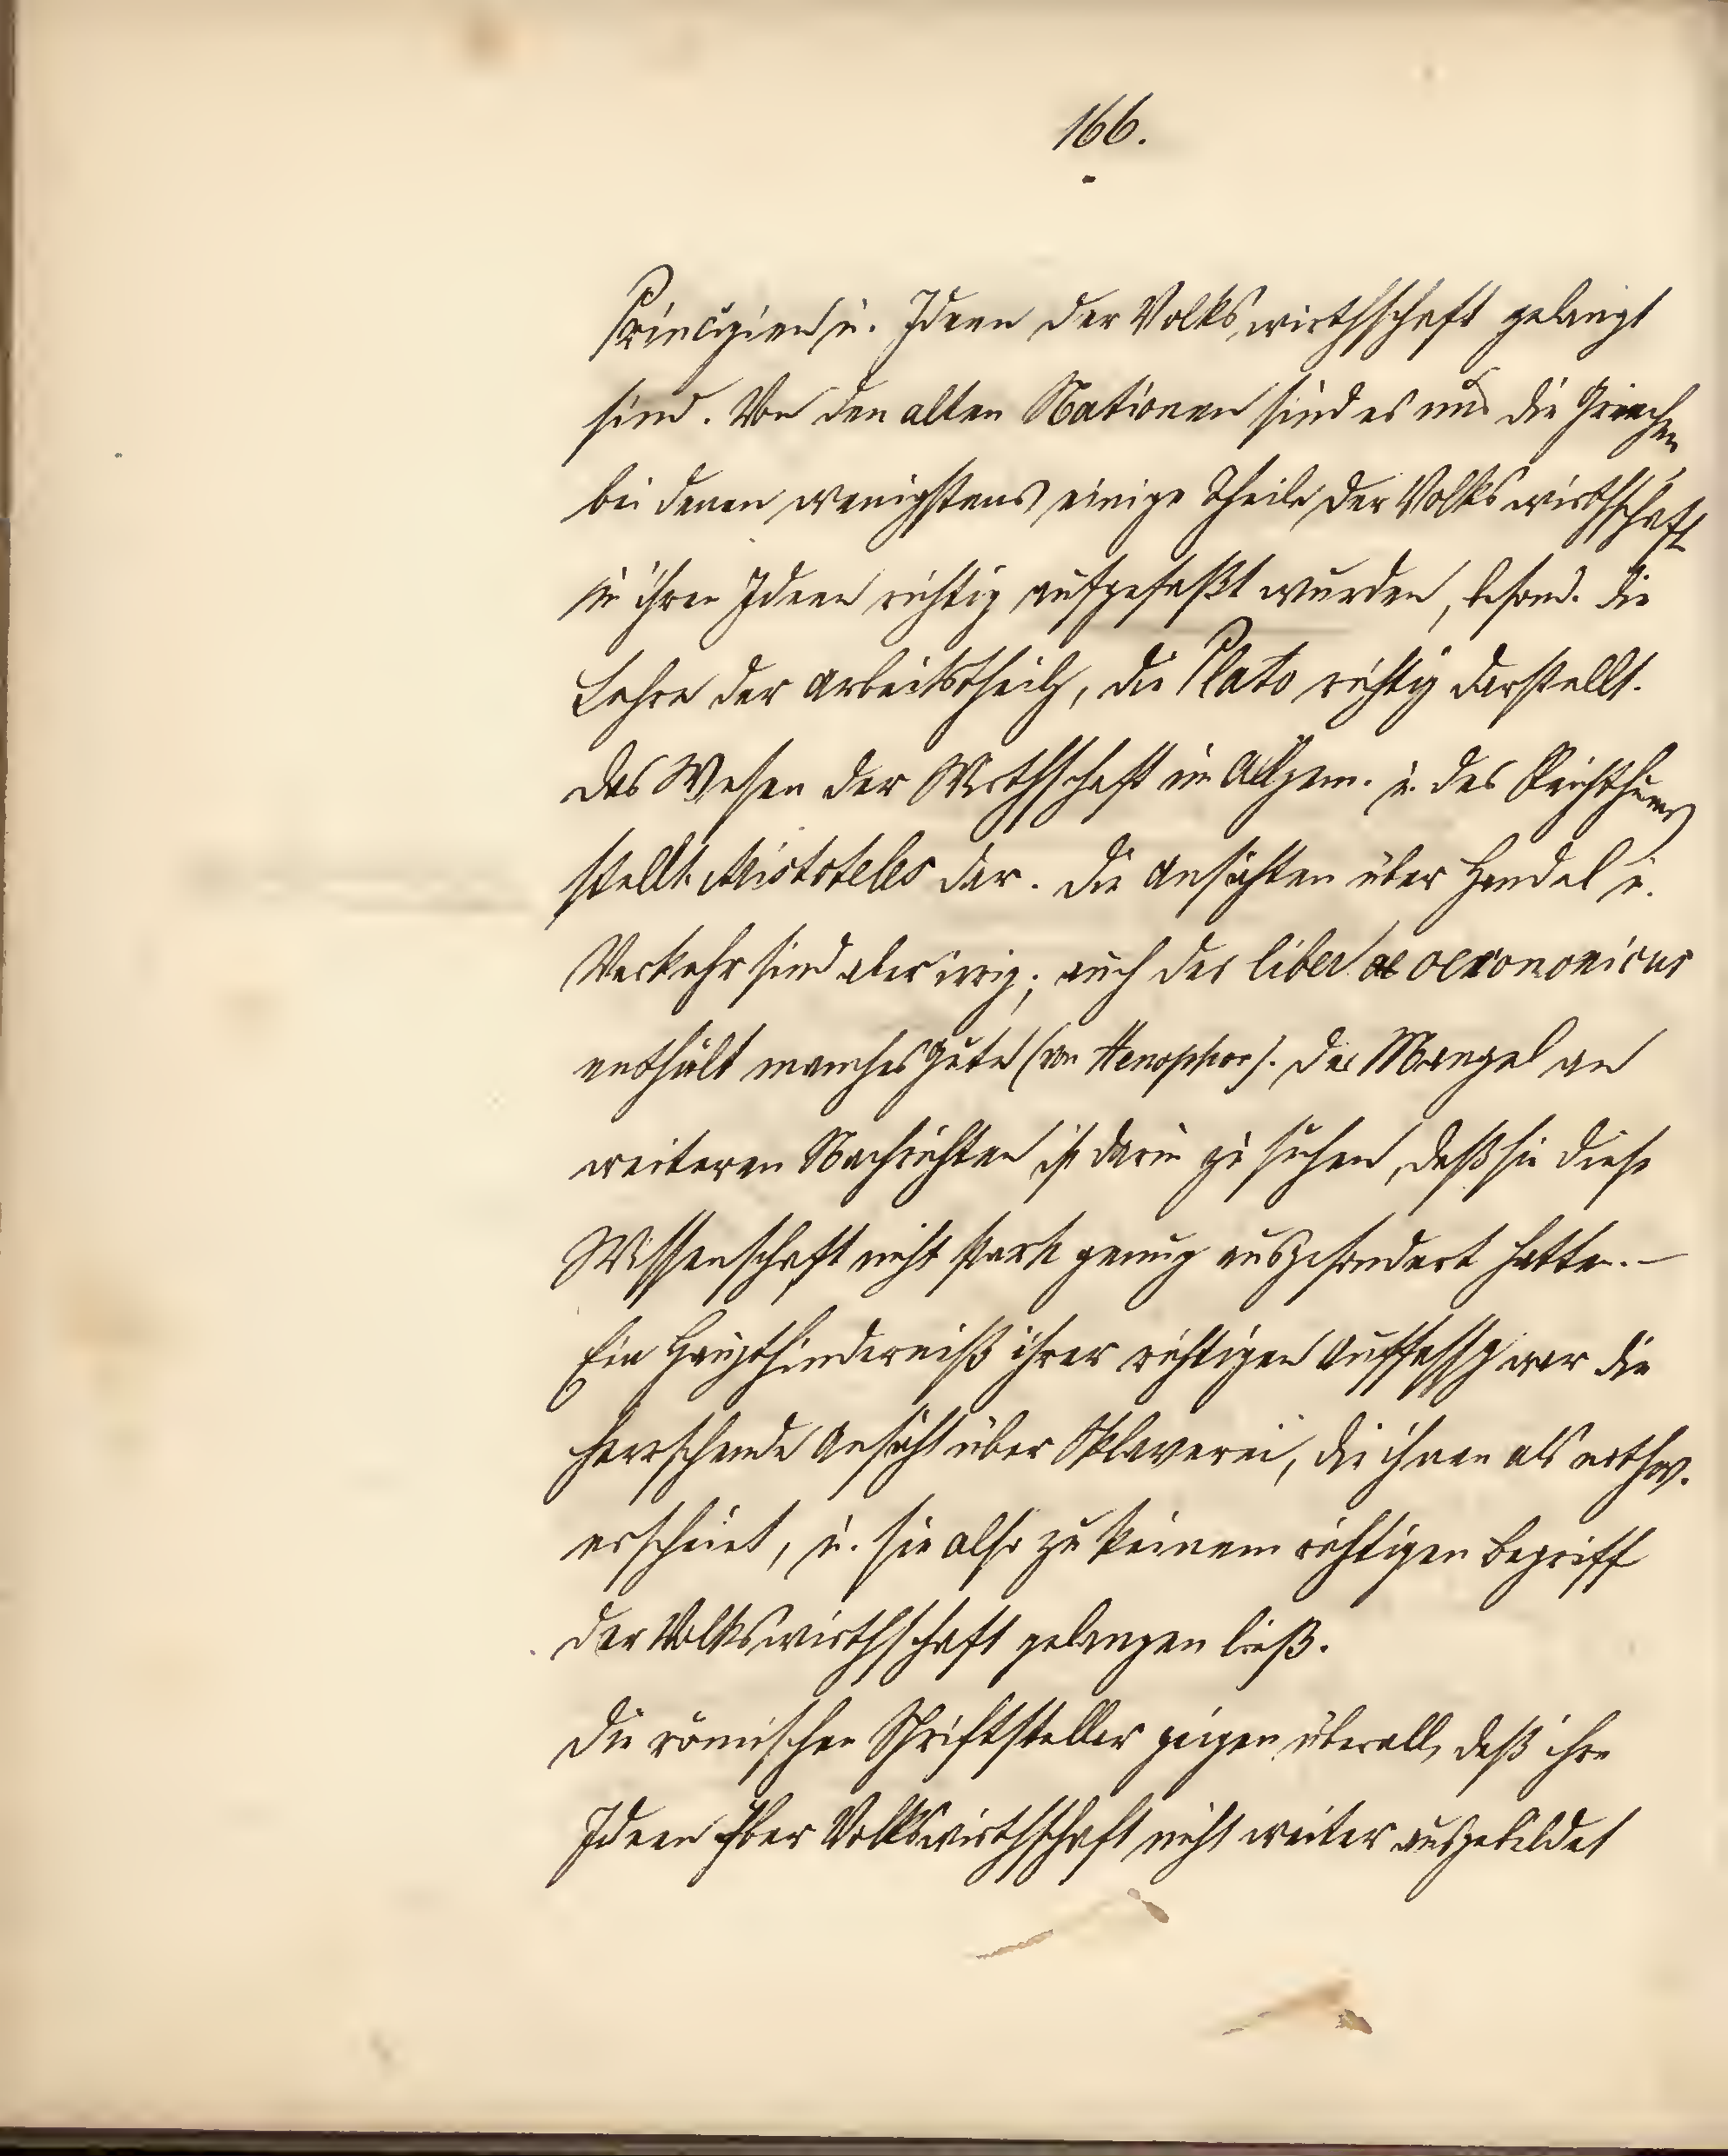 166.
Principien u. Ideen der Volkswirthschaft gelangt
sind. Von den alten Nationen sind es nur die Griechen
bei denen wenigstens einige Theile der Volkswirthschaft
in ihren Ideen richtig aufgefaßt wurden, besond. die
Lehre der Arbeitstheilg, die Plato richtig darstellt.
Das Wesen der Wirthschaft im Allgem. u. des Reichthums
stellt Aristoteles dar. Die Ansichten über Handel u.
Verkehr sind aber irrig; auch der liber oeconomicus
enthält manches Gute (von Xenophon). Der Mangel an
weiteren Nachrichten ist darin zu suchen, daß sie diese
Wissenschaft nicht stark genug ausgesondert hatten. —
Ein Haupthinderniß ihrer richtigen Auffassg war die
herrschende Ansicht über Sklaverei, die ihnen als nothw.
erscheint, u. sie also zu keinem richtigen Begriff
der Volkswirthschaft gelangen ließ.
Die römischen Schriftsteller zeigen überall, daß ihre
Ideen über Volkswirthschaft nicht weiter ausgebildet